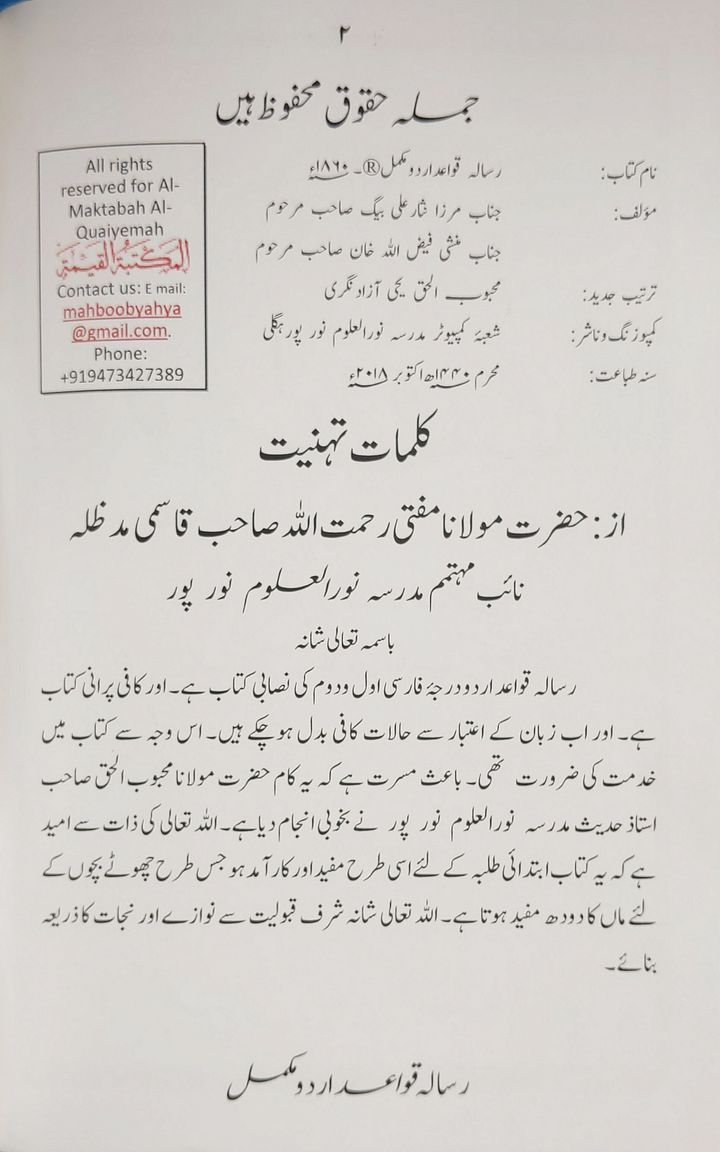 ۲
جملہ حقوق محفوظ ہیں
نام کتاب: رسالہ قواعد اردو مکمل®۔ ۱۸۶۰ء
مؤلف: جناب مرزا نثار علی بیگ صاحب مرحوم
جناب منشی فیض اللہ خان صاحب مرحوم
ترتیب جدید: محبوب الحق یحی آزاد نگری
کمپوزنگ وناشر: شعبۂ کمپیوٹر مدرسہ نورالعلوم نور پور ہگلی
سنہ طباعت: محرم ۱۴۴۰ھ اکتوبر ۲۰۱۸ء
All rights
reserved for Al-
Maktabah Al-
Quaiyemah
المكتبة القيمة
Contact us: E mail:
mahboobyahya
@gmail.com.
Phone:
+919473427389
کلمات تہنیت
از: حضرت مولانا مفتی رحمت اللہ صاحب قاسمی مدظلہ
نائب مہتمم مدرسہ نورالعلوم نور پور
باسمہ تعالی شانہ
رسالہ قواعد اردو درجۂ فارسی اول ودوم کی نصابی کتاب ہے۔ اور کافی پرانی کتاب
ہے۔ اور اب زبان کے اعتبار سے حالات کافی بدل ہو چکے ہیں۔ اس وجہ سے کتاب میں
خدمت کی ضرورت تھی۔ باعث مسرت ہے کہ یہ کام حضرت مولانا محبوب الحق صاحب
استاذ حدیث مدرسہ نورالعلوم نور پور نے بخوبی انجام دیا ہے۔ اللہ تعالی کی ذات سے امید
ہے کہ یہ کتاب ابتدائی طلبہ کے لئے اسی طرح مفید اور کارآمد ہو جس طرح چھوٹے بچوں کے
لئے ماں کا دودھ مفید ہوتا ہے۔ اللہ تعالی شانہ شرف قبولیت سے نوازے اور نجات کا ذریعہ
بنائے۔
رسالہ قواعد اردو مکمل